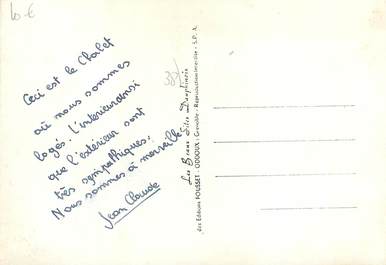 10 €
38/
Ceci est le Chalet
où nous sommes
logés. L'intérieur ainsi
que l'extérieur sont
très sympathiques.
Nous sommes à merveille
Jean Claude
Les Beaux Sites Dauphinois
des Editions POUSSET - ODDOUX - Grenoble - Reproduction interdite - S.P.A.